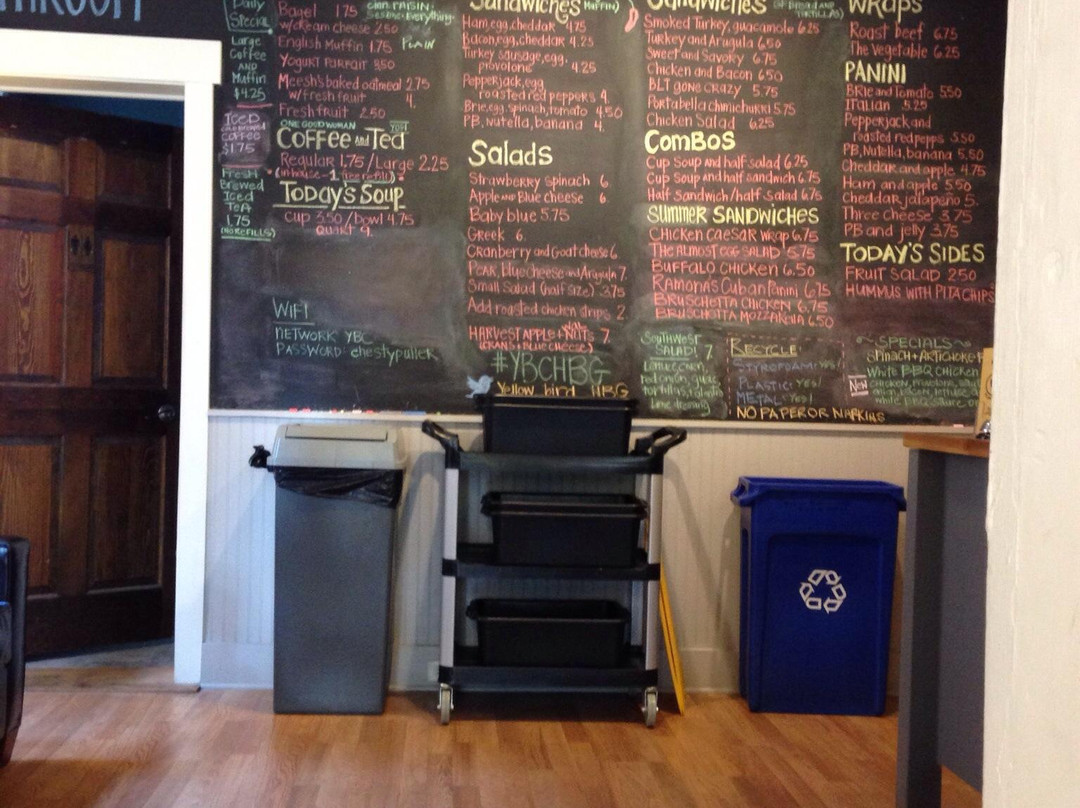 Daily
Special
Large
Coffee
AND
Muffin
$4.25
ICED
COFFEE
$1.75
FRESH
Brewed
Iced
TEA
1.75
(NO REFILLS)
Bagel 1.75
w/cream cheese 2.50
English Muffin 1.75 PLAIN
Yogurt Parfait 3.50
Meesh's baked oatmeal 2.75
w/fresh fruit 4.
Fresh fruit 2.50
ONE GOOD WOMAN
Coffee AND Tea
Regular 1.75/Large 2.25
(in house-1 free refill)
Today's Soup
Cup 3.50/bowl 4.75
QUART 9.
WIFI
NETWORK: YBC
PASSWORD: chestypuller
Sandwiches MUFFIN)
Ham, egg, cheddar 4.75
Bacon, egg, cheddar 4.25
Turkey sausage, egg,
provolone 4.25
Pepperjack, egg
roasted red peppers 4.
Brie, egg, spinach, tomato 4.50
PB, nutella, banana 4.
Salads
Strawberry spinach 6.
Apple AND Blue cheese 6
Baby blue 5.75
Greek 6.
Cranberry and Goat cheese 6
Pear, blue cheese and Arugula 7.
Small Salad (half size) 3.75
Add roasted chicken strips 2.
HARVEST APPLE + NUTS 7.
(CRANS + BLUE CHEESE)
#YBCHBG
Yellow bird HBG
Sandwiches
Smoked Turkey, guacamole 6.25
Turkey and Arugula 6.50
Sweet and Savory 6.75
Chicken and Bacon 6.50
BLT gone crazy 5.75
Portabella chimichurri 5.75
Chicken Salad 6.25
COMBOS
Cup Soup and half salad 6.25
Cup Soup and half sandwich 6.75
Half Sandwich/half salad 6.75
SUMMER SANDWICHES
CHICKEN CAESAR WRAP 6.75
THE ALMOST EGG SALAD 5.75
BUFFALO CHICKEN 6.50
RAMONA'S CUBAN PANINI 6.75
BRUSCHETTA CHICKEN 6.75
BRUSCHETTA MOZZARELLA 6.50
SOUTHWEST
SALAD! 7.
lime dressing
RECYCLE:
STYROFOAM: YES!
PLASTIC: YES!
METAL: YES!
NO PAPER OR NAPKINS
WRAPS
Roast beef 6.75
The vegetable 6.25
PANINI
BRIE and Tomato 5.50
Italian 5.25
Pepperjack and
roasted red pepps 5.50
PB, Nutella, banana 5.50
Cheddar and apple 4.75
Ham and apple 5.50
Cheddar, jalapeno 5.
Three cheese 3.75
PB and jelly 3.75
TODAY'S SIDES
FRUIT SALAD 2.50
HUMMUS WITH PITA CHIPS
SPECIALS
SPINACH + ARTICHOKE
White BBQ Chicken
New